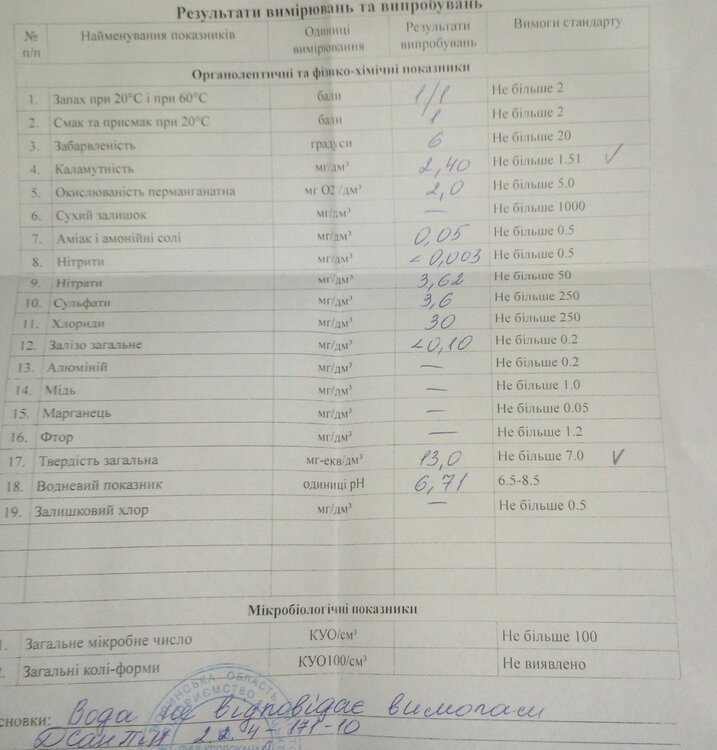 Результати вимірювань та випробувань
№ п/п Найменування показників Одиниці вимірювання Результати випробувань Вимоги стандарту
Органолептичні та фізико-хімічні показники
1. Запах при 20°С і при 60°С бали 1/1 Не більше 2
2. Смак та присмак при 20°С бали 1 Не більше 2
3. Забарвленість градуси 6 Не більше 20
4. Каламутність мг/дм³ 2,40 Не більше 1.51 ✓
5. Окислюваність перманганатна мг О2 /дм³ 2,0 Не більше 5.0
6. Сухий залишок мг/дм³ — Не більше 1000
7. Аміак і амонійні солі мг/дм³ 0,05 Не більше 0.5
8. Нітрити мг/дм³ <0,003 Не більше 0.5
9. Нітрати мг/дм³ 3,62 Не більше 50
10. Сульфати мг/дм³ 3,6 Не більше 250
11. Хлориди мг/дм³ 30 Не більше 250
12. Залізо загальне мг/дм³ <0,10 Не більше 0.2
13. Алюміній мг/дм³ — Не більше 0.2
14. Мідь мг/дм³ — Не більше 1.0
15. Марганець мг/дм³ — Не більше 0.05
16. Фтор мг/дм³ — Не більше 1.2
17. Твердість загальна мг-екв/дм³ 13,0 Не більше 7.0 ✓
18. Водневий показник одиниці рН 6,71 6.5-8.5
19. Залишковий хлор мг/дм³ — Не більше 0.5
Мікробіологічні показники
1. Загальне мікробне число КУО/см³ Не більше 100
2. Загальні колі-форми КУО100/см³ Не виявлено
сновки: Вода не відповідає вимогам
ДСанПіН 2.2.4-171-10
ОБЛАСТЬ